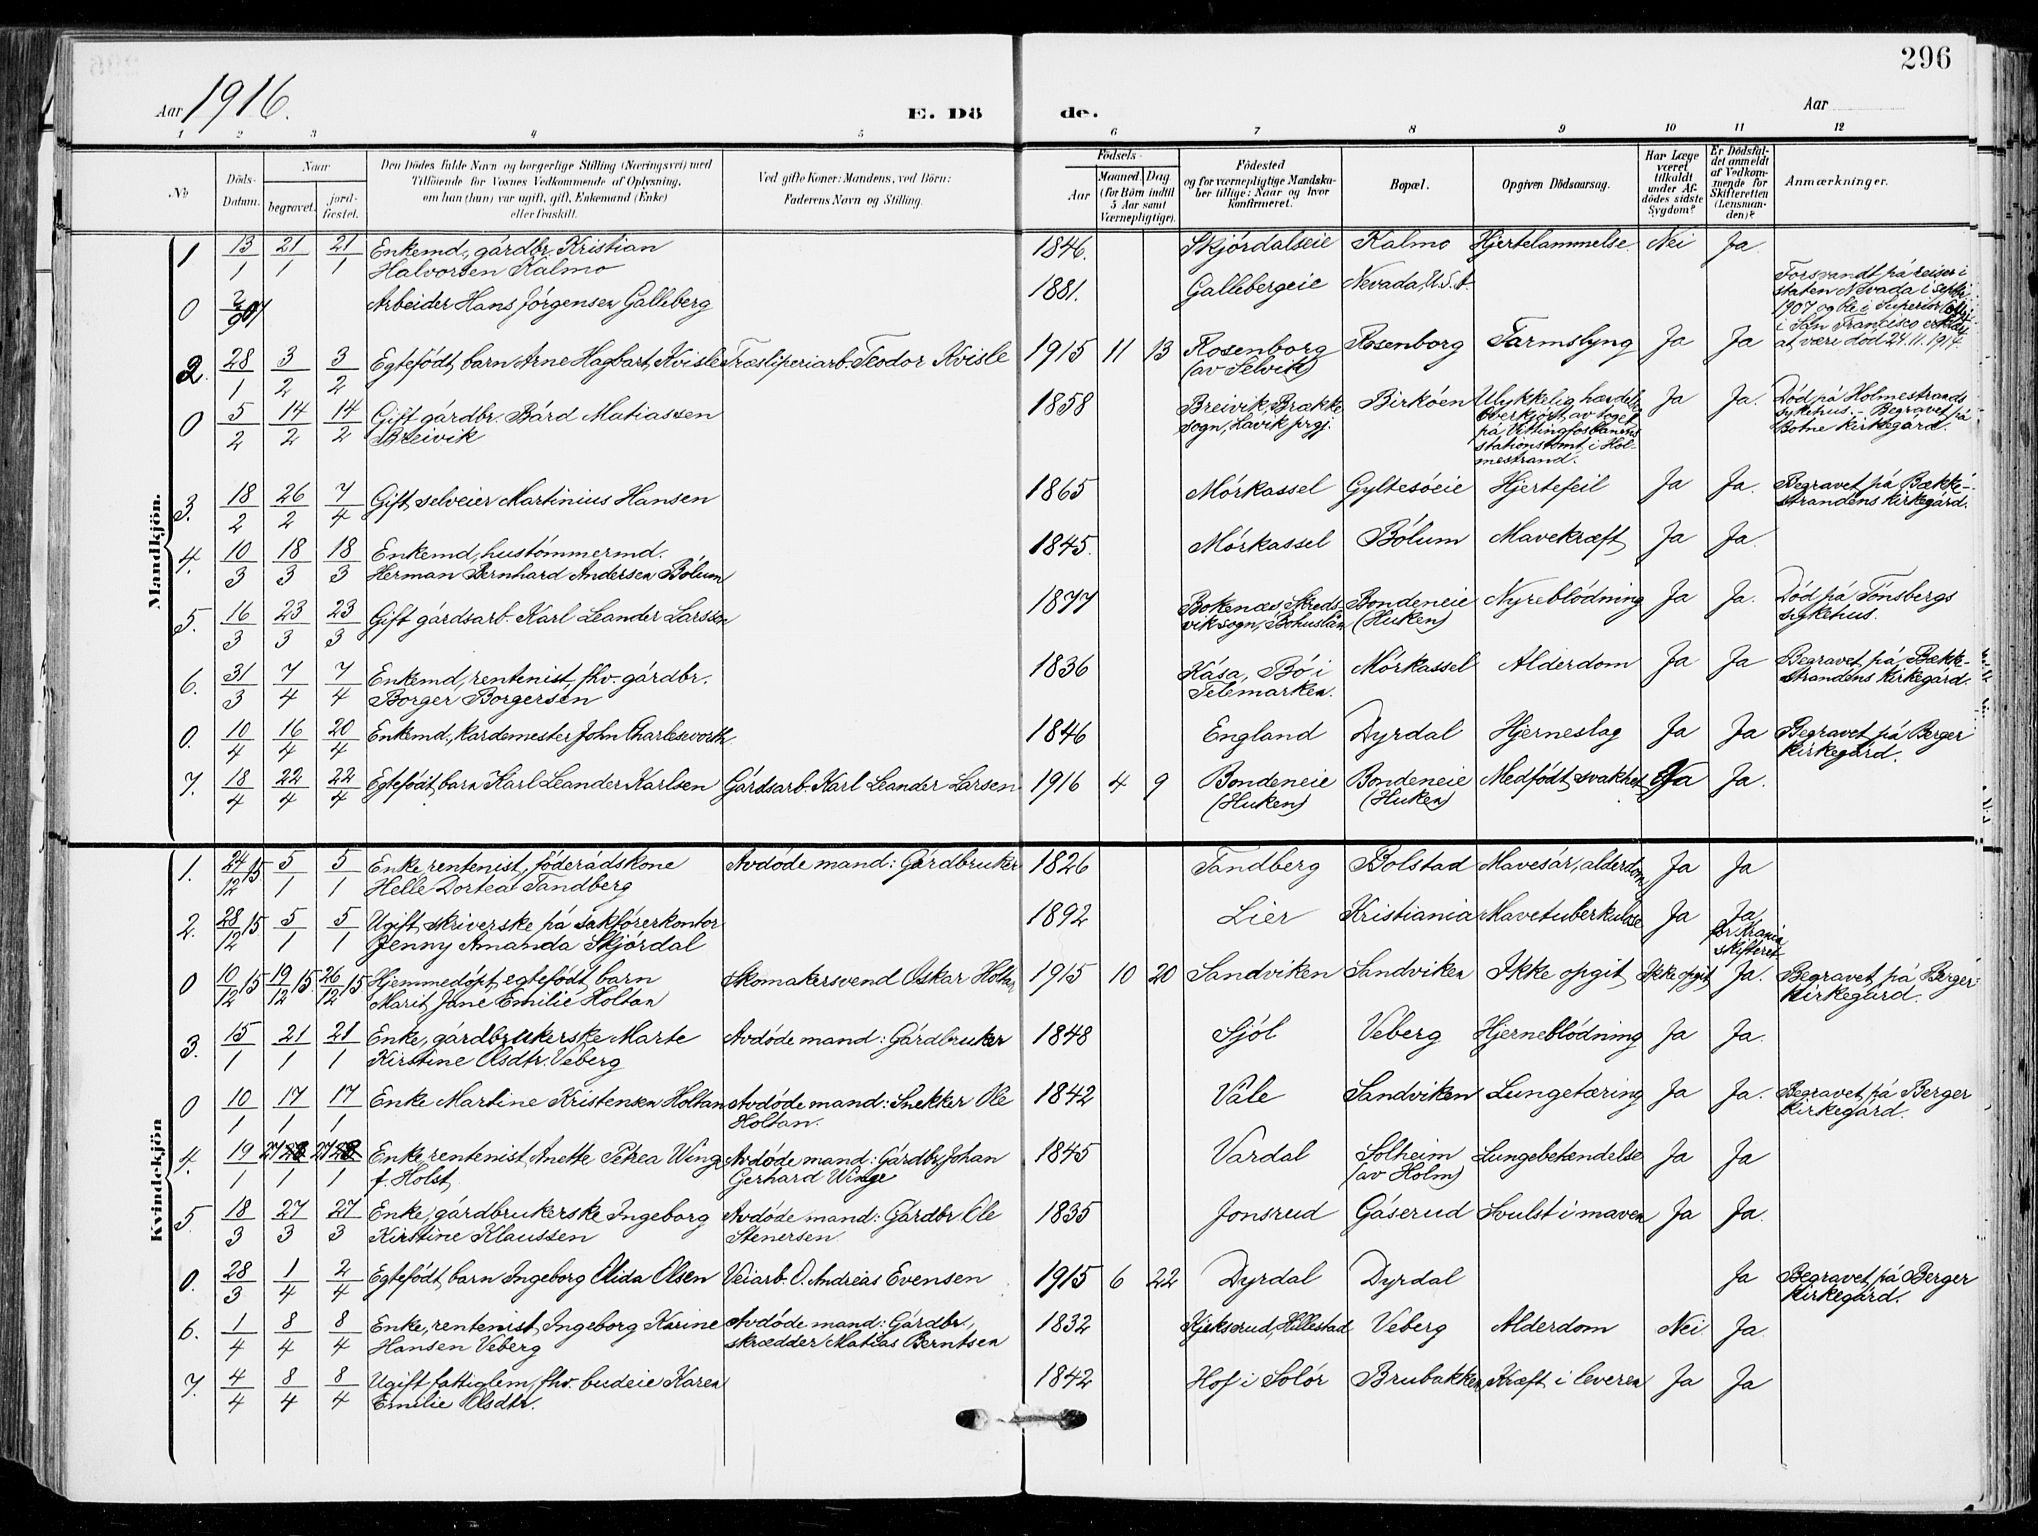 296
Aar 1916.
E. Dö de.
Aar
1 2 3 4 5 6 7 8 9 10 11 12
No
Döds-Datum.
Naar
begravet.
jord-fæstet.
Den Dödes fulde Navn og borgerlige Stilling (Næringsvei) med
Tilföiende for Voxnes Vedkommende af Oplysning,
om han (hun) var ugift, gift, Enkemand (Enke)
eller fraskilt.
Ved gifte Koner: Mandens, ved Börn:
Faderens Navn og Stilling.
Födsels-
Aar
Maaned. Dag.
(for Börn indtil
5 Aar samt
Værnepligtige).
Födested
og for værnepligtige Mandska-
ber tillige: Naar og hvor
konfirmeret.
Bopæl.
Opgiven Dödsaarsag.
Har Læge
været
tilkaldt
under Af-
dödes sidste
Sygdom?
Er Dödsfal-
det anmeldt
af Vedkom-
mende for
Skifteretten
(Lensman-
den)?
Anmærkninger.
Mandkjön.
1 13/1 21/1 21/1 Enkemd., gårdbr. Kristian 1846. Skjördalseie Kalmo Hjertelammelse Nei Ja
Halvorsen Kalmo
0 2/9 07 Arbeider Hans Jörgensen Galleberg 1881. Gallebergeie Nevada, U.S.A. Forsvandt på reiser i
staten Nevada i septbr.
1907 og ble i Superior Court
i San Francisco erklært
at være död 24.11.1914.
2. 28/1 3/2 3/2 Egtefödt barn Arne Hagbart Kvisle Træsliperiarb. Teodor Kvisle 1915 11 13 Rosenborg Rosenborg Tarmslyng Ja Ja
(av Selvik)
0 5/2 14/2 14/2 Gift gårdbr. Bård Matiassen 1858 Breivik, Brække Birköen Ulykkelig hændelse Ja Ja. Död på Holmestrands
Breivik sogn, Lavik prgj. Overkjört av toget sykehus. - Begravet på
på Vittingfosbanens Botne kirkegård.
stationstomt i Hol-
mestrand.
3. 18/2 26/2 7/4 Gift selveier Martinius Hansen 1865 Mörkassel Gyltesöeie Hjertefeil Ja Ja. Begravet på Bække-
strandens kirkegård.
4. 10/3 18/3 18/3 Enkemd, hustömmermd. 1845. Mörkassel Bölum Mavekræft Ja Ja.
Herman Bernhard Andersen Bölum
5. 16/3 23/3 23/3 Gift gårdsarb. Karl Leander Larsson 1877 Bokenæs, Skreds- Bondeneie Nyreblödning Ja Ja. Död på Tönsbergs
vik sogn, Bohuslän (Huken) sykehus.
6. 31/3 7/4 7/4 Enkemd, rentenist, fhv. gårdbr. 1836 Kåsa, Bö i Mörkassel Alderdom Ja Ja Begravet på Bække-
Borger Borgersen Telemarken. strandens kirkegård.
0. 10/4 16/4 20/4 Enkemd., kardemester John Charlesworth 1846 England Dyrdal Hjerneslag Ja Ja Begravet på Berger
kirkegård.
7. 18/4 22/4 22/4 Egtefödt barn Karl Leander Karlsen Gårdsarb. Karl Leander Larsen 1916 4 9 Bondeneie Bondeneie Medfödt svakhet Ja Ja.
(Huken) (Huken)
Kvindekjön
1. 24/12 15 5/1 5/1 Enke, rentenist, föderådskone Avdöde mand: Gårdbruker 1826 Tandberg Bolstad Mavesår, alderdom Ja Ja
Helle Dortea Tandberg
2. 28/12 15 5/1 5/1 Ugift skriverske på sakförerkontor 1892 Lier Kristiania Mavetuberkulose Ja Ja,
Jenny Amanda Skjördal for Krania
skifteret
0 10/12 15 19/12 15 26/12 15 Hjemmedöpt, egtefödt barn Skomakersvend Oskar Holtan 1915 10 20 Sandviken Sandviken Ikke opgit Ikke opgit Ja. Begravet på Berger
Marit Jane Emilie Holtan kirkegård.
3. 15/1 21/1 21/1 Enke, gårdbrukerske Marte Avdöde mand: Gårdbruker 1848 Sjöl Veberg Hjerneblödning Ja Ja.
Kirstine Olsdtr. Veberg
0 10/1 17/1 17/1 Enke Martine Kristensen Holtan Avdöde mand: Snekker Ole 1842 Våle Sandviken Lungetæring Ja Ja. Begravet på Berger
Holtan. kirkegård.
4. 19/1 27/1 27/1 Enke, rentenist Anette Petrea Winge Avdöde mand: Gårdbr. Johan 1845 Vardal Solheim Lungebetændelse Ja Ja
f. Holst Gerhard Winge (av Holm)
5. 18/3 27/3 27/3 Enke, gårdbrukerske Ingeborg Avdöde mand: Gårdbr Ole 1835 Jonsrud Gåserud Svulst i maven Ja Ja.
Kirstine Klaussen Stenersen.
0. 28/3 1/4 2/4 Egtefödt barn Ingeborg Alida Olsen Veiarb. O. Andreas Evensen 1915 6 22 Dyrdal Dyrdal Ja Begravet på Berger
kirkegård.
6. 1/4 8/4 8/4 Enke, rentenist, Ingeborg Karine Avdöde mand: Gårdbr., 1832 Kjekserud, Hillestad Veberg Alderdom Nei Ja
Hansen Veberg skrædder Matias Berntsen
7. 4/4 8/4 8/4 Ugift fattiglem, fhv. budeie Karen 1842 Hof i Solör Brubakken Kræft i leveren Ja Ja
Emilie Olsdtr.